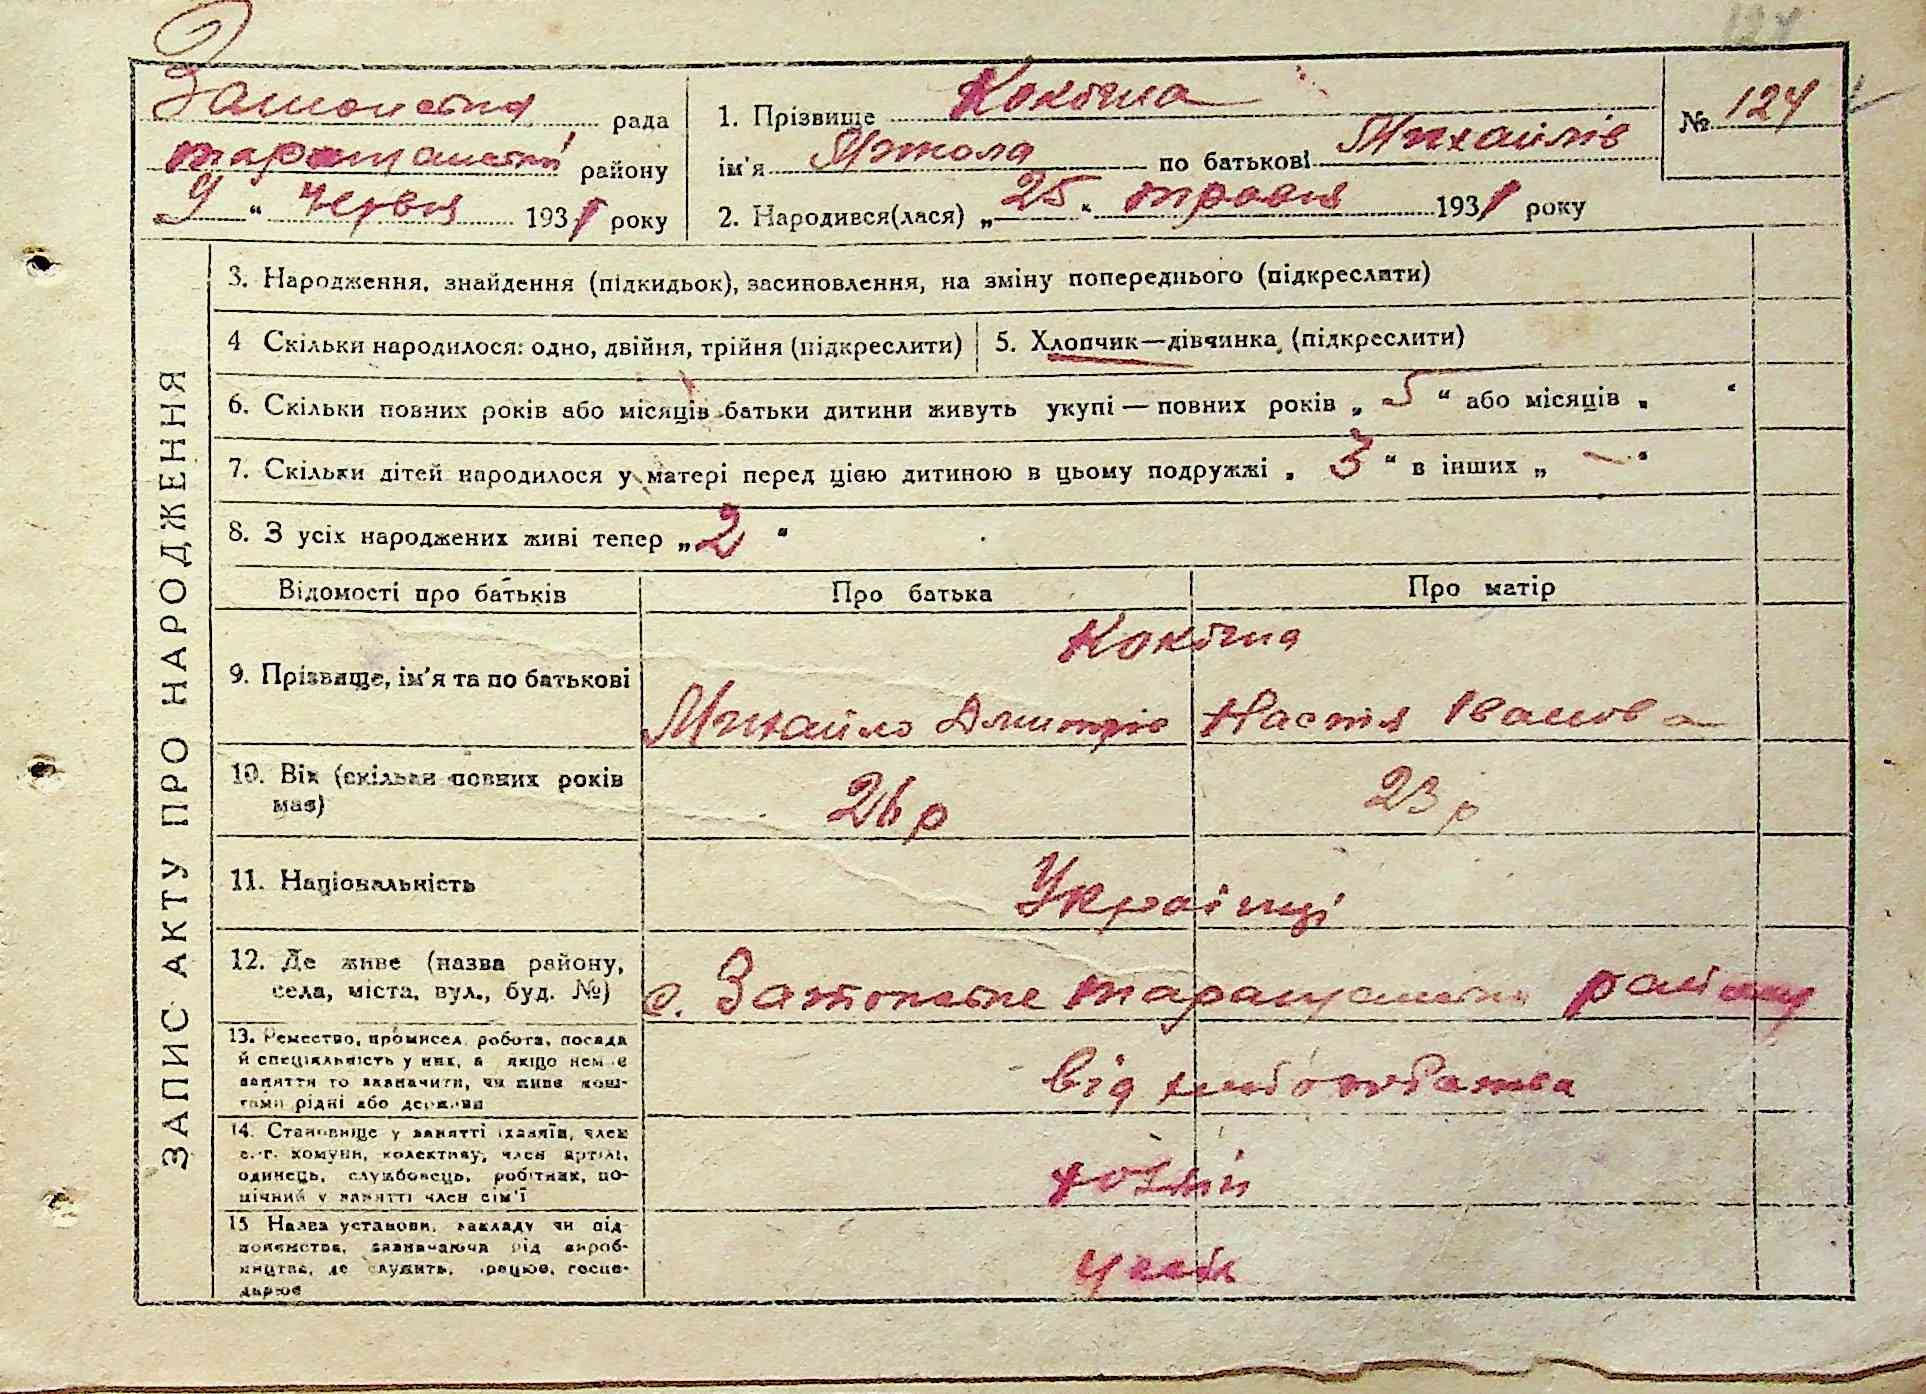 рада
районУ
„ 9 “ червня 1931 року
1. Прізвище
ім'я Микола по батькові Михайлів
2. Народився(лася) „ 25 “ травня 1931 року
№ 124
ЗАПИС АКТУ ПРО НАРОДЖЕННЯ
3. Народження, знайдення (підкидьок), засиновлення, на зміну попереднього (підкреслити)
4 Скільки народилося: одно, двійня, трійня (підкреслити)
5. Хлопчик—дівчинка (підкреслити)
6. Скільки повних років або місяців батьки дитини живуть укупі — повних років „ 5 “ або місяців „ “
7. Скільки дітей народилося у матері перед цією дитиною в цьому подружжі „ 3 “ в інших „ — “
8. З усіх народжених живі тепер „ 2 “
Відомості про батьків
Про батька
Про матір
9. Прізвище, ім'я та по батькові
Михайло Дмитрів
Настя Іванова
10. Вік (скільки повних років
має)
26 р
23 р
11. Національність
Українці
12. Де живе (назва району,
села, міста, вул., буд. №)
с. району
13. Ремество, промисел, робота, посада
й спеціяльність у них, а якщо немає
заняття то зазначити, чи живе кош-
тами рідні або держави
від
14. Становище у занятті (хазяїн, член
с.-г. комуни, колективу, член артілі,
одинець, службовець, робітник, по-
мічний у занятті член сім'ї
15 Назва установи, закладу чи під-
приємства, зазначаючи рід вироб-
ництва, де служить, працює, госпо-
дарює
у себе